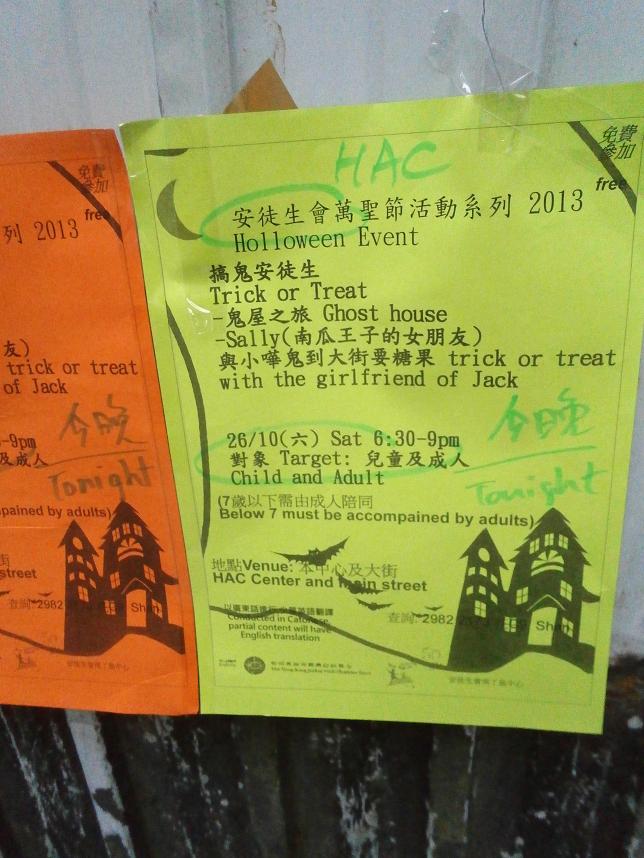 列 2013
免費
參加
free
友)
trick or treat
of Jack
-9pm
及成人
今晚
Tonight
mpained by adults)
街
street
查詢:2982
HAC
免費
參加
free
安徒生會萬聖節活動系列 2013
Holloween Event
搞鬼安徒生
Trick or Treat
-鬼屋之旅 Ghost house
-Sally(南瓜王子的女朋友)
與小嘩鬼到大街要糖果 trick or treat
with the girlfriend of Jack
26/10(六) Sat 6:30-9pm
今晚
Tonight
對象 Target: 兒童及成人
Child and Adult
(7歲以下需由成人陪同
Below 7 must be accompained by adults)
地點Venue: 本中心及大街
HAC Center and main street
以廣東話進行,
Conducted in Catonese,
partial content will have
English translation
查詢:2982